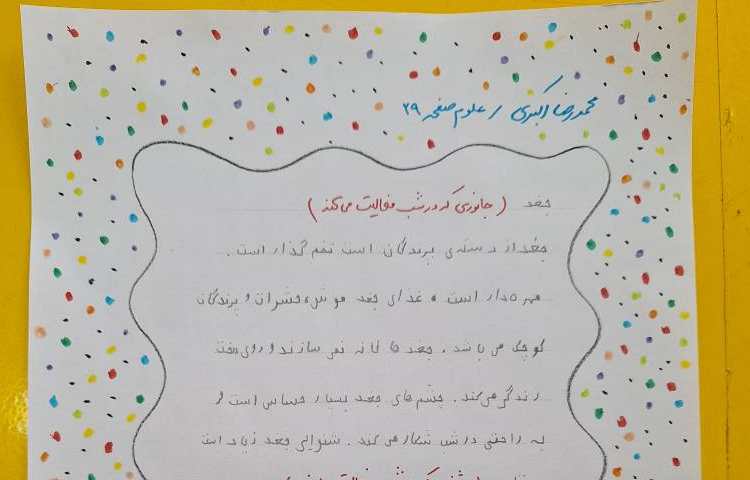 محمدرضا اکبری / علوم صفحه ۳۹
جغد (جانوری که در شب فعالیت می‌کند)
جغد از دسته‌ی پرندگان است تخم گذار است.
مهره‌دار است و غذای جغد موش، حشرات و پرندگان
کوچک می باشد. جغد ها لانه نمی سازند و روی درخت
زندگی می‌کند. چشم های جغد بسیار حساس است و
به راحتی در شب شکار می کند. شنوایی جغد زیاد است